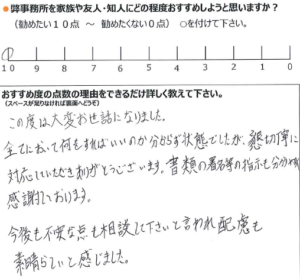 ● 弊事務所を家族や友人・知人にどの程度おすすめしようと思いますか？
（勧めたい１０点 ～ 勧めたくない０点） ○を付けて下さい。
10 9 8 7 6 5 4 3 2 1 0
おすすめ度の点数の理由をできるだけ詳しく教えて下さい。
（スペースが足りなければ裏面へどうぞ）
この度は大変お世話になりました。
全てにおいて何をすればいいのか分からず状態でしたが、懇切丁寧に
対応していただきありがとうございます。書類の署名等の指示も分かりやすく
感謝しております。
今後も不安な点も相談して下さいと言われ配慮も
素晴らしいと感じました。